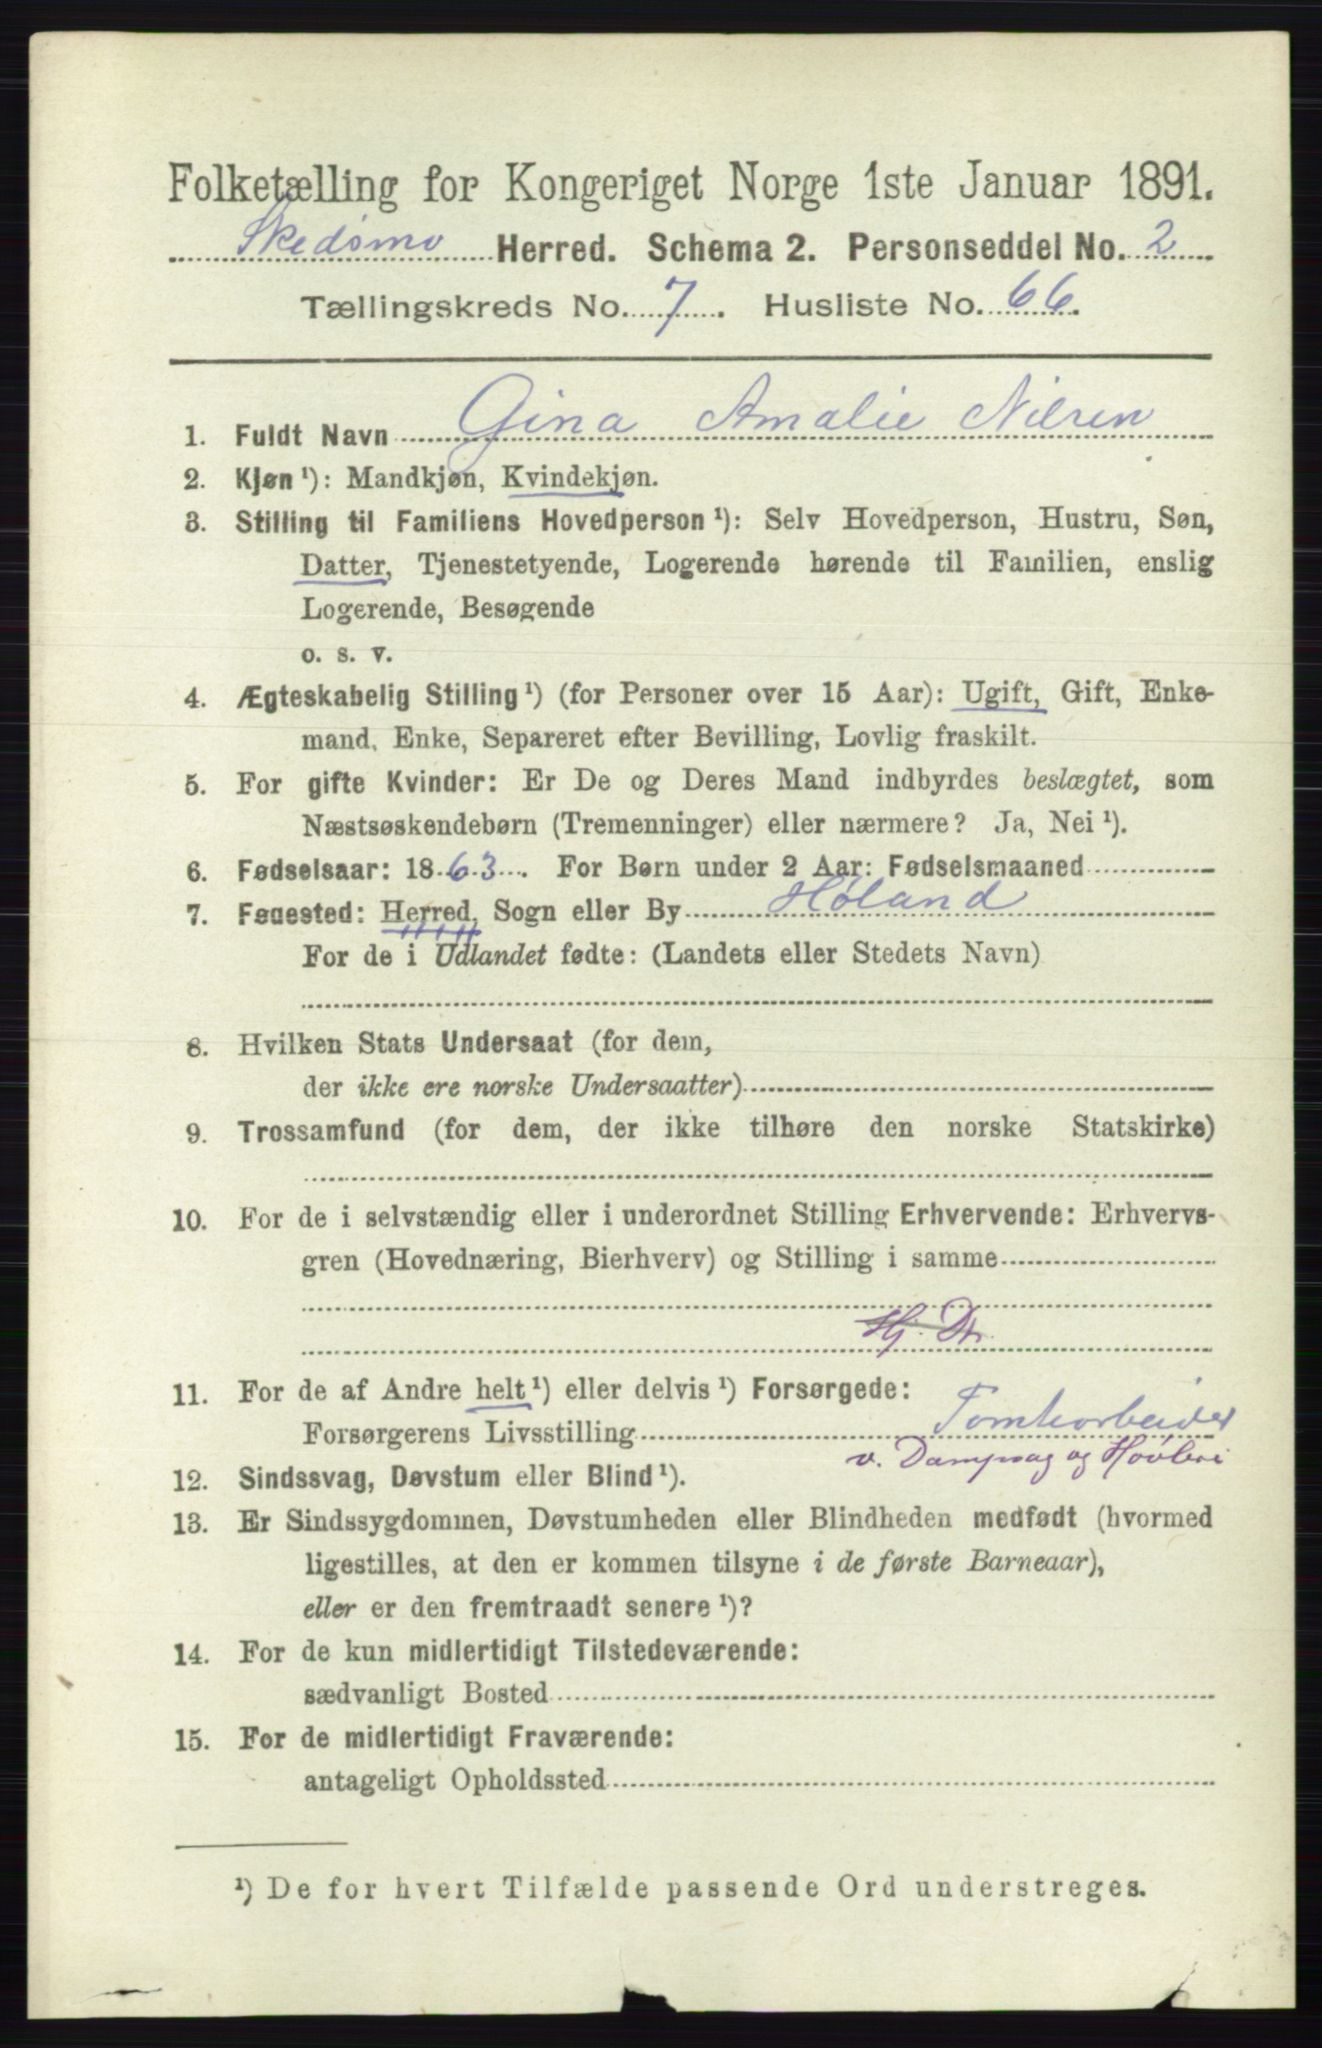 Folketælling for Kongeriget Norge 1ste Januar 1891.
Skedsmo Herred. Schema 2. Personseddel No. 2
Tællingskreds No. 7. Husliste No. 66.
1. Fuldt Navn Gina Amalie Nilsen
2. Kjøn ¹): Mandkjøn, Kvindekjøn.
3. Stilling til Familiens Hovedperson ¹): Selv Hovedperson, Hustru, Søn,
Datter, Tjenestetyende, Logerende hørende til Familien, enslig
Logerende, Besøgende
o. s. v.
4. Ægteskabelig Stilling ¹) (for Personer over 15 Aar): Ugift, Gift, Enke-
mand, Enke, Separeret efter Bevilling, Lovlig fraskilt.
5. For gifte Kvinder: Er De og Deres Mand indbyrdes beslægtet, som
Næstsøskendebørn (Tremenninger) eller nærmere? Ja, Nei ¹).
6. Fødselsaar: 1863. For Børn under 2 Aar: Fødselsmaaned
7. Fødested: Herred, Sogn eller By Høland
For de i Udlandet fødte: (Landets eller Stedets Navn)
8. Hvilken Stats Undersaat (for dem,
der ikke ere norske Undersaatter)
9. Trossamfund (for dem, der ikke tilhøre den norske Statskirke)
10. For de i selvstændig eller i underordnet Stilling Erhvervende: Erhvervs-
gren (Hovednæring, Bierhverv) og Stilling i samme
Hj. Dtr.
11. For de af Andre helt ¹) eller delvis ¹) Forsørgede:
Forsørgerens Livsstilling Tomtearbeider
v. Dampsag og Høvleri
12. Sindssvag, Døvstum eller Blind ¹).
13. Er Sindssygdommen, Døvstumheden eller Blindheden medfødt (hvormed
ligestilles, at den er kommen tilsyne i de første Barneaar),
eller er den fremtraadt senere ¹)?
14. For de kun midlertidigt Tilstedeværende:
sædvanligt Bosted
15. For de midlertidigt Fraværende:
antageligt Opholdssted
¹) De for hvert Tilfælde passende Ord understreges.